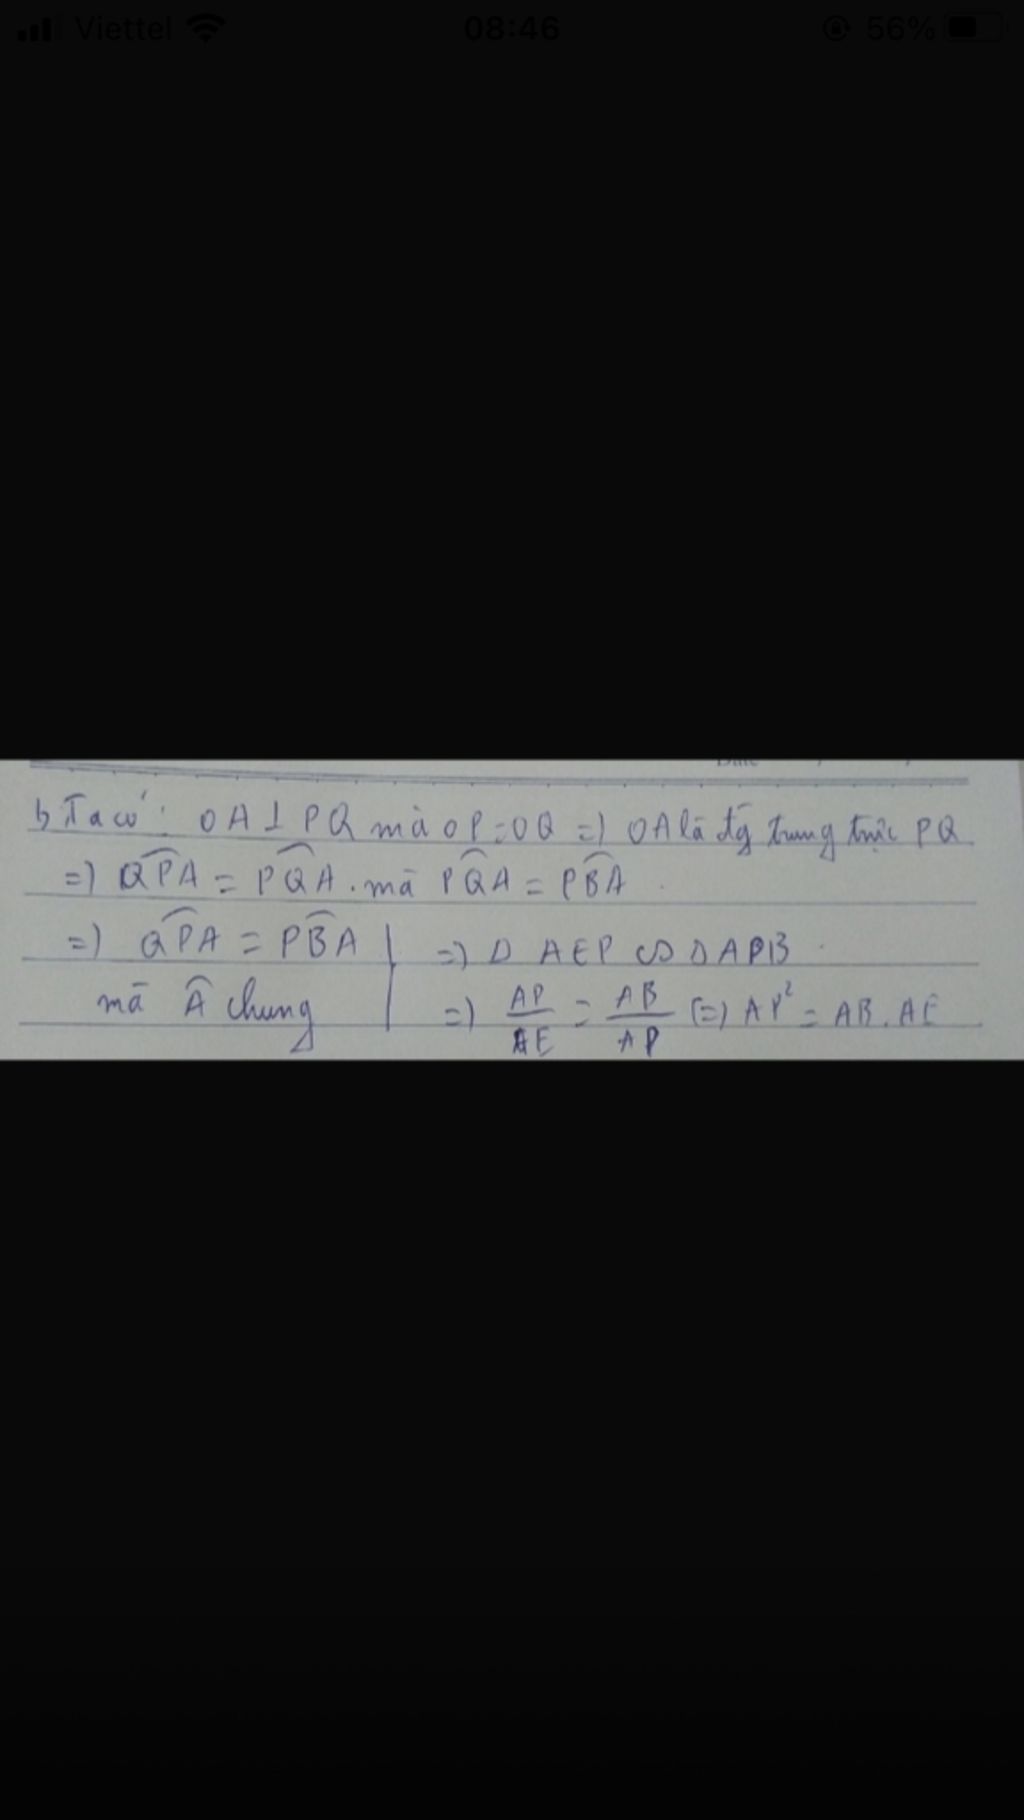 Viettel 08:46 56%
Date
b, Ta có: OA ⊥ PQ mà OP = OQ => OA là đg trung trực PQ
=> QPA = PQA. mà PQA = PBA
=> QPA = PBA | => Δ AEP ∽ Δ APB
mà Â chung | => AP/AE = AB/AP (=) AP² = AB. AE